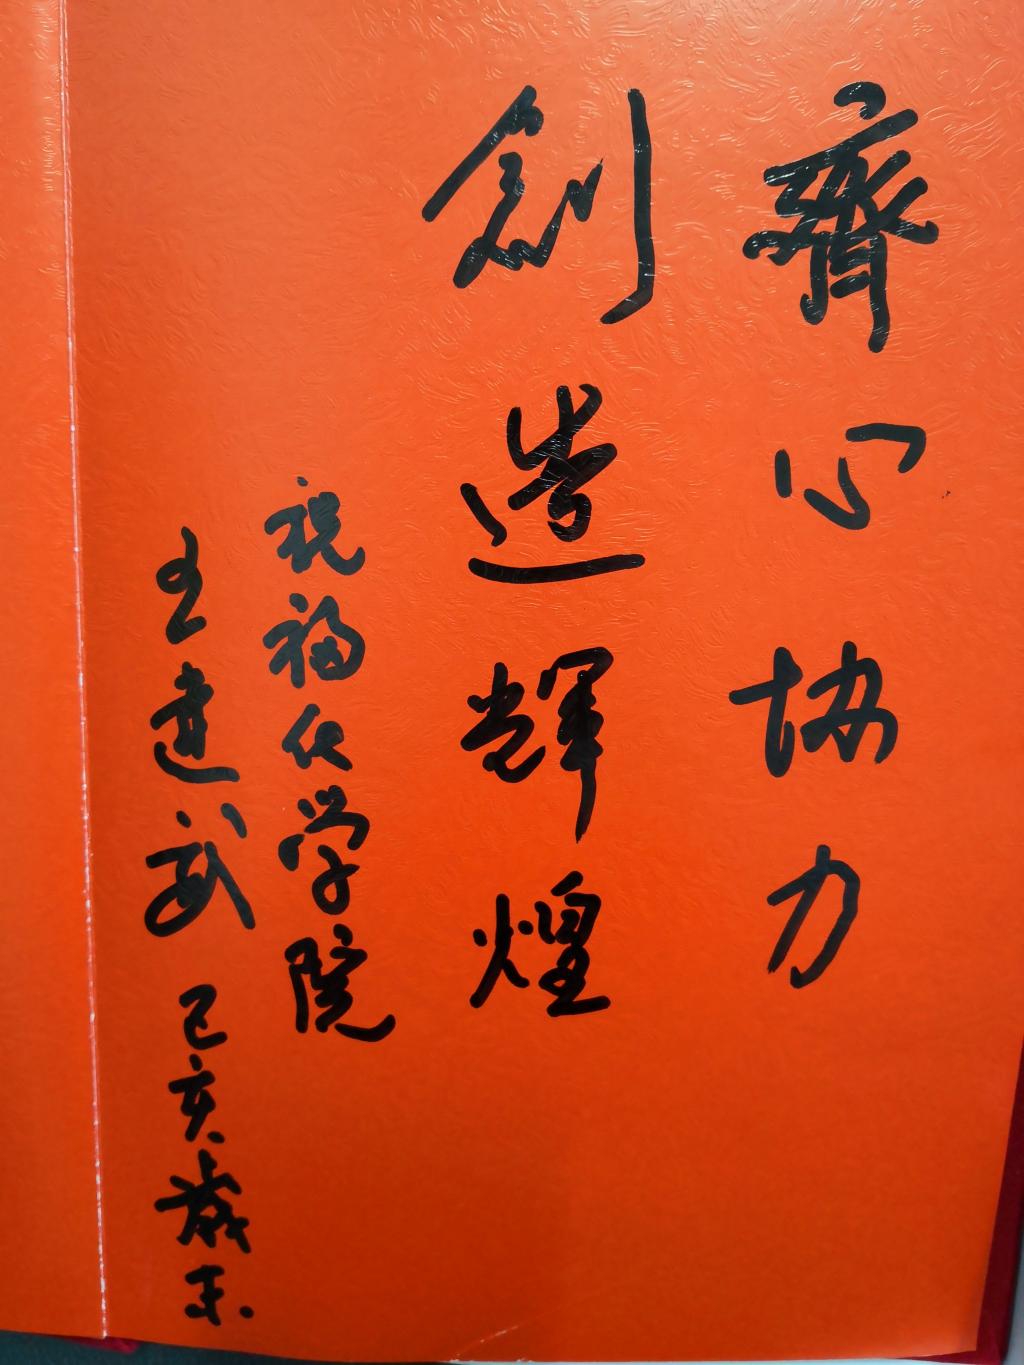 齊心协力
創造輝煌
祝福化学院
王建武 己亥歲末